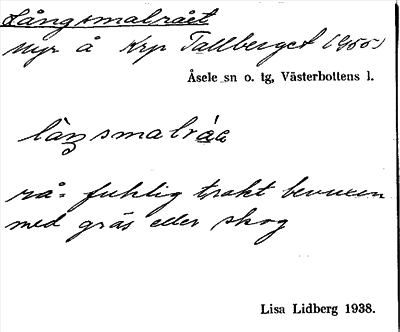 Långsmalrået
myr å krp Tallberget (950s)
Åsele sn o. tg, Västerbottens l.
långsmalråe
rå = fuktig trakt bevuxen
med gräs eller skog
Lisa Lidberg 1938.